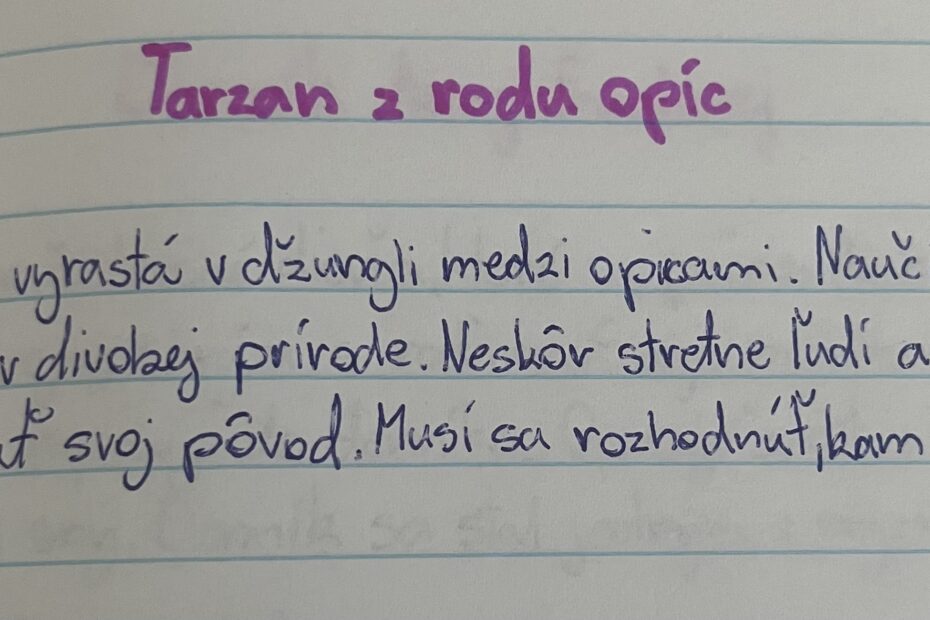 Tarzan z rodu opíc
vyrastá v džungli medzi opicami. Nauč
v divokej prírode. Neskôr stretne ľudí a
ť svoj pôvod. Musí sa rozhodnúť, kam